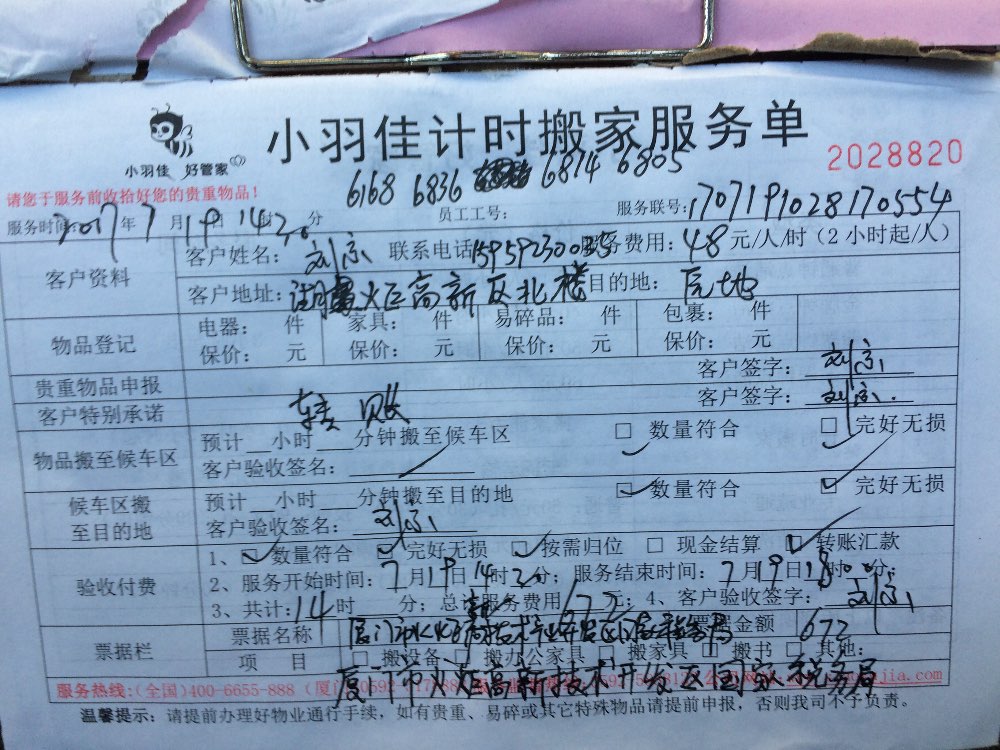 小羽佳计时搬家服务单
小羽佳 好管家
2028820
请您于服务前收拾好您的贵重物品！
6168 6836 6814 6805
服务时间：2017年7月19日14时20分 员工工号： 服务联号：1707191028170554
客户资料
客户姓名：刘京 联系电话 务费用：48元/人/时（2小时起/人）
客户地址：火炬高新区北楼 目的地：后地
物品登记
电器： 件 家具： 件 易碎品： 件 包裹： 件
保价： 元 保价： 元 保价： 元 保价： 元
贵重物品申报 客户签字：刘京
客户特别承诺 转账 客户签字：刘京
物品搬至候车区
预计 小时 分钟搬至候车区 □ 数量符合 □ 完好无损
客户验收签名：
候车区搬至目的地
预计 小时 分钟搬至目的地 ☑ 数量符合 ☑ 完好无损
客户验收签名：刘京
验收付费
1、☑ 数量符合 ☑ 完好无损 ☑ 按需归位 □ 现金结算 ☑ 转账汇款
2、服务开始时间：7月19日14时20分；服务结束时间：7月19日18时00分；
3、共计：14时 分；总计服务费用672元；4、客户验收签字：刘京
票据栏
票据名称 票据金额 672
项 目 □搬设备 □搬办公家具 □搬家具 □搬书 □其他：
厦门市火炬高新技术开发区国家税务局
服务热线：(全国)400-6655-888
温馨提示：请提前办理好物业通行手续，如有贵重、易碎或其它特殊物品请提前申报，否则我司不予负责。